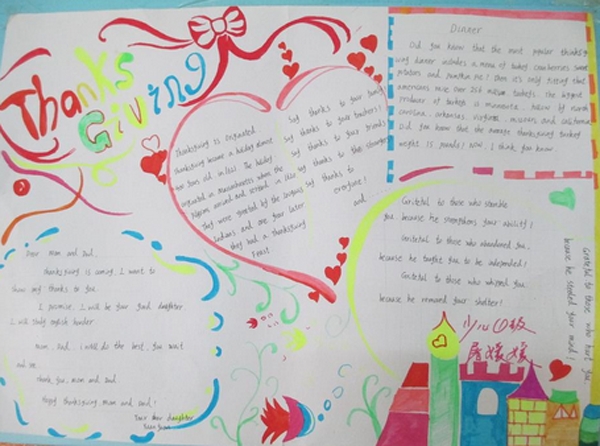 Thanks
Giving
Dinner
Did you know that the most popular thanksgi
ving dinner includes a menu of turkey cranberries sweet
potatoes and pumpkin pie! then it's only fitting that
americans raise over 256 million turkeys. the biggest
producer of turkeys is minnesota. follow by north
carolina, arkansas, virginia, missouri and california
Did you know that the average thanksgiving turkey
weight is pounds! NOW, I think you know.
Thanksgiving is Originated
Thanksgiving became a holiday almost
years old. in 1621. The holiday
originated in Massachusetts when the
Pilgrims arrived and settled. in
They were greeted by the
Indians and one year later
they had a thanksgiving
Feast
Say thanks to your family
Say thanks to your teachers!
Say thanks to your friends
Say thanks to the strangers
Say thanks to
everyone!
and
Grateful to those who stumble
you because he strengthens your ability!
Grateful to those who abandoned you,
because he taught you to be independed!
Grateful to those who whipped you.
because he removed your shelter!
Grateful to those who hurt you.
because he steeled your mind!
Dear mom and dad
Thanksgiving is coming. I want to
show my thanks to you
I promise. I will be your good daughter
I will study english harder
mom, Dad. i will do the best. You wait
and see.
Thank you, mom and dad
Happy thanksgiving, mom and dad!
Your dear daughter
级